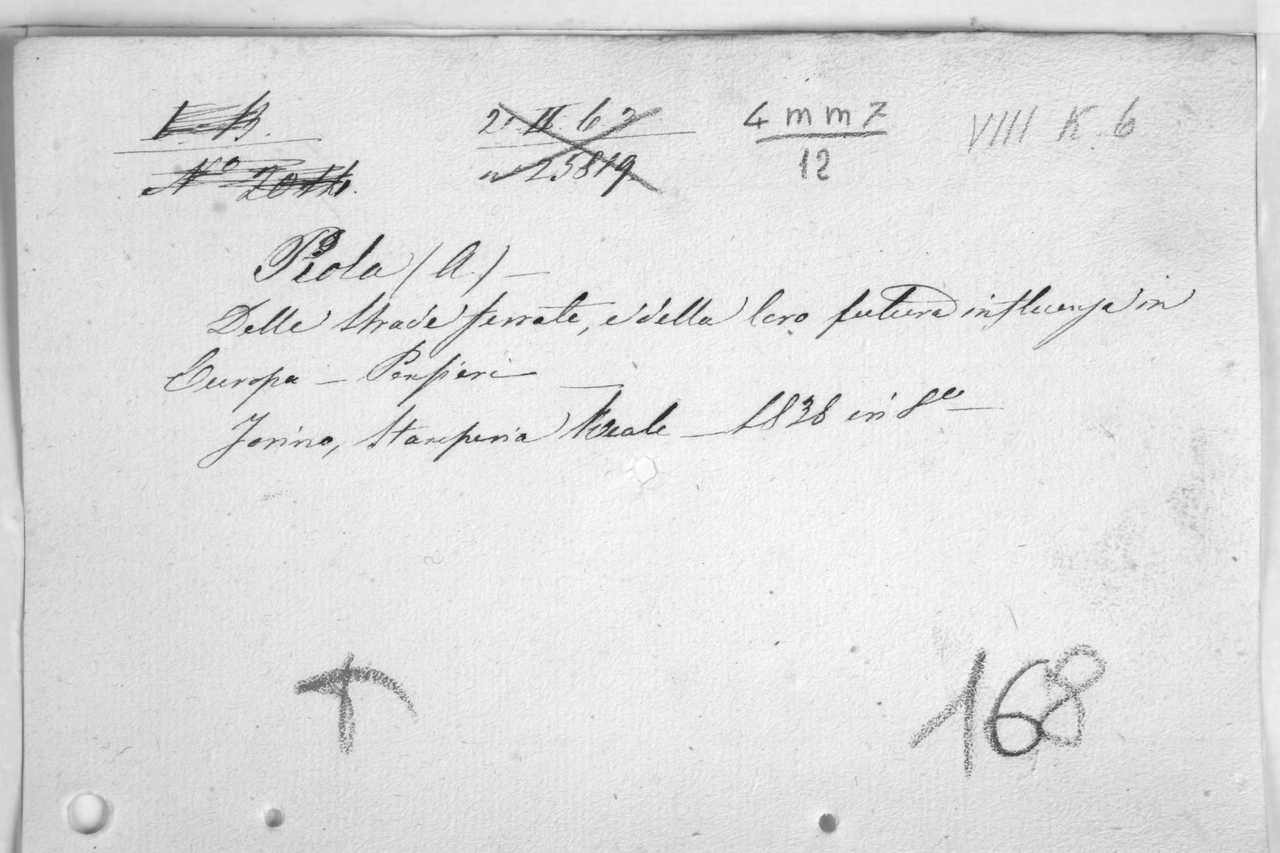 2. II. 6 2 4 m m 7 VIII K. 6
Nº n 25819 12
Piola (A.) —
Delle Strade ferrate, e della loro futura influenza in
Europa — Pensieri —
Torino, Stamperia Reale — 1838 in 8º —
168